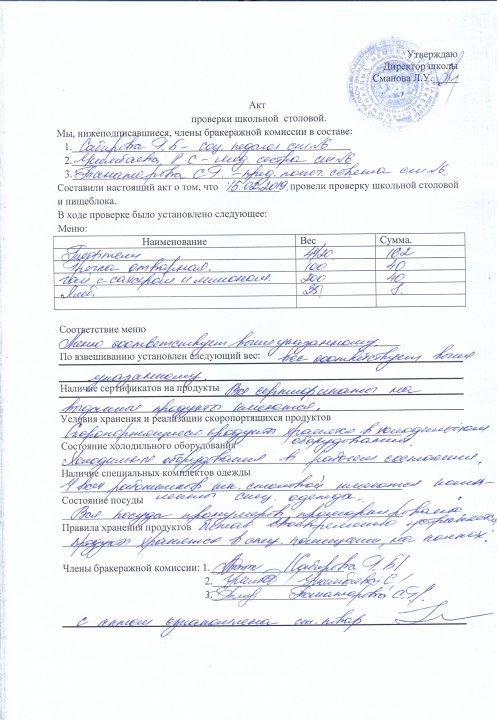 Утверждаю
Директор школы
Сманова Л.У.
Акт
проверки школьной столовой.
Мы, нижеподписавшиеся, члены бракеражной комиссии в составе:
1. Сабирова Г.Б - соц. педагог сш №
2. С - мед. сестра сш №
3. - пред. попеч. совета сш №
Составили настоящий акт о том, что 15.02.2019 провели проверку школьной столовой
и пищеблока.
В ходе проверке было установлено следующее:
Меню:
Наименование Вес Сумма.
Тефтели 162
Гречка отварная. 100 40
Чай с сахаром и лимоном. 200 40
Хлеб. 35 8
Соответствие меню
Меню соответствует выше указанному
По взвешиванию установлен следующий вес: вес соответствует выше
указанному.
Наличие сертификатов на продукты Все сертификаты на
продукты имеются.
Условия хранения и реализации скоропортящихся продуктов
Скоропортящиеся продукты хранятся в холодильном
оборудовании.
Состояние холодильного оборудования
Холодильные оборудования в рабочем состоянии.
Наличие специальных комплектов одежды
У всех работников шк. столовой имеются
спец. одежда.
Состояние посуды
Вся посуда
Правила хранения продуктов
продукты хранятся в спец. помещении, на полках.
Члены бракеражной комиссии: 1. Сабирова Г.Б
2.
3.
с актом ознакомлена ст. повар